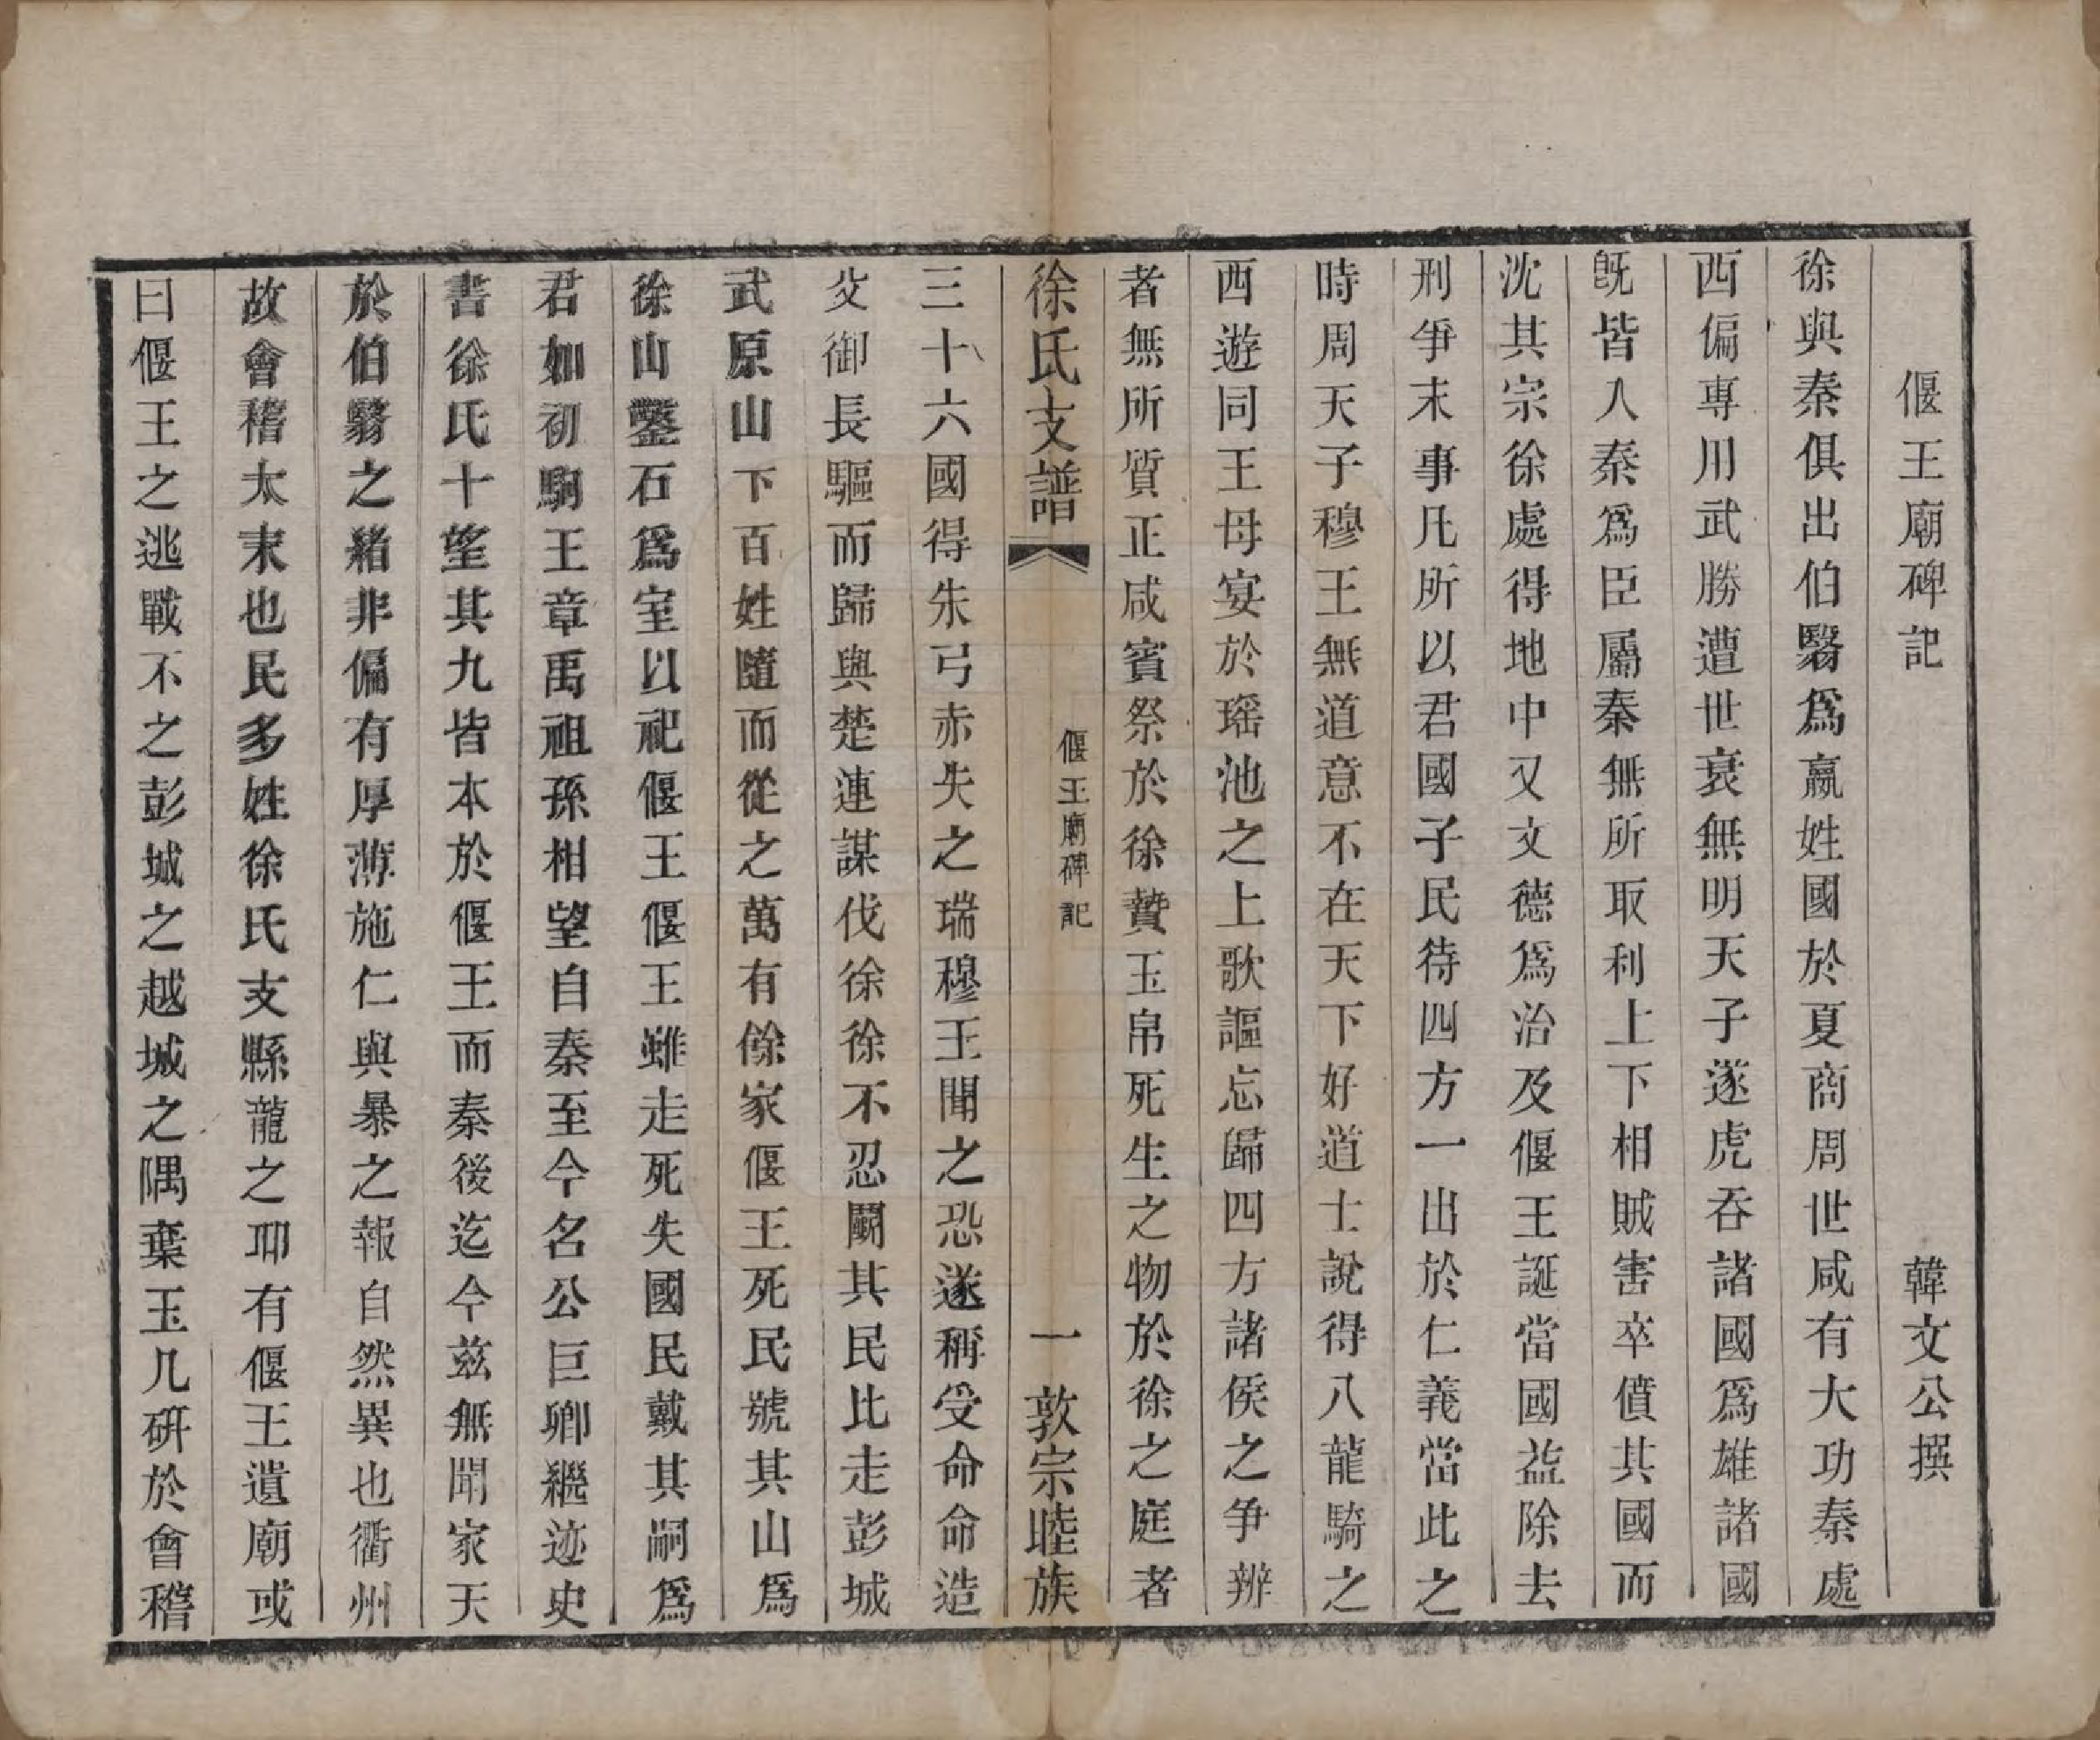 偃王廟碑記 韓文公撰
徐與秦俱出伯翳爲嬴姓國於夏商周世咸有大功秦處
西偏專用武勝遭世衰無明天子遂虎吞諸國爲雄諸國
旣皆入秦爲臣屬秦無所取利上下相賊害卒僨其國而
沈其宗徐處得地中又文德爲治及偃王誕當國益除去
刑爭末事凡所以君國子民待四方一出於仁義當此之
時周天子穆王無道意不在天下好道士說得八龍騎之
西遊同王母宴於瑶池之上歌謳忘歸四方諸侯之争辨
者無所質正咸賓祭於徐贄玉帛死生之物於徐之庭者
徐氏支譜 偃王廟碑記 一 敦宗睦族
三十六國得朱弓赤矢之瑞穆王聞之恐遂稱受命命造
父御長驅而歸與楚連謀伐徐徐不忍鬭其民比走彭城
武原山下百姓隨而從之萬有餘家偃王死民號其山爲
徐山鑿石爲室以祀偃王偃王雖走死失國民戴其嗣爲
君如初駒王章禹祖孫相望自秦至今名公巨卿繼迹史
書徐氏十望其九皆本於偃王而秦後迄今茲無聞家天
於伯翳之緒非偏有厚薄施仁與暴之報自然異也衢州
故會稽太末也民多姓徐氏支縣龍之邱有偃王遺廟或
曰偃王之逃戰不之彭城之越城之隅棄玉几硏於會稽